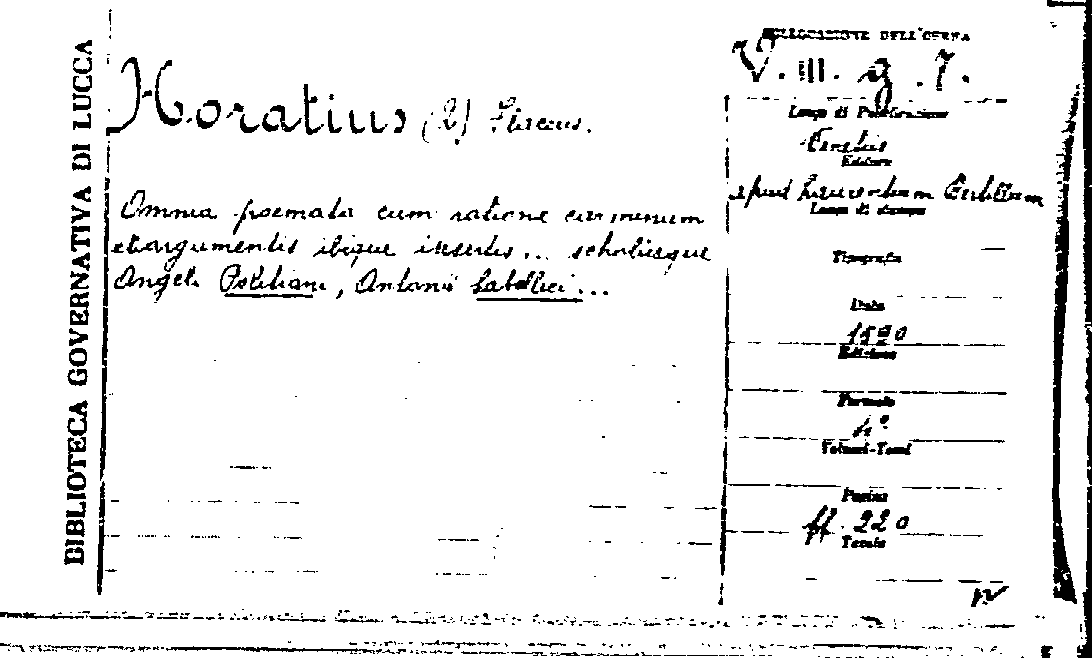 BIBLIOTECA GOVERNATIVA DI LUCCA
Horatius (Q) Flaccus.
Omnia poemata cum ratione carminum
et argumentis ibique insertis... scholiisque
Angeli Politiani, Antonii Sabellici...
COLLOCAZIONE DELL'OPERA
V. III. g. 7.
Luogo di Pubblicazione
Venetiis
Editore
apud
Luogo di stampa
Tipografia
Data
Edizione
Formato
4°
Volumi-Tomi
Pagine
ff. 220
Tavole